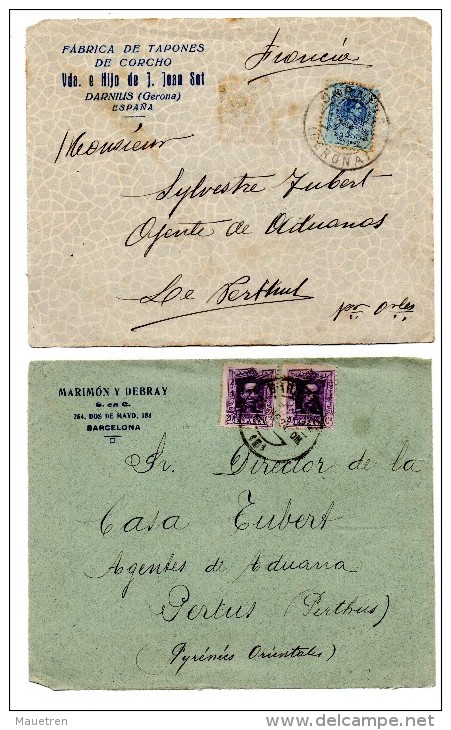 FÁBRICA DE TAPONES
DE CORCHO
Vda. e Hijo de J. Juan Sot
DARNIUS (Gerona)
ESPAÑA
Francia
Monsieur
Sylvestre Tubert
Agente de Aduanas
Le Perthus
por Arles
MARIMÓN Y DEBRAY
S. en C.
264, DOS DE MAYO,
BARCELONA
Sr. Director de la
Casa Tubert
Agentes de Aduana
Pertus (Perthus)
(Pyrénées Orientales)
Posted by
Mauetren
www.delcampe.net